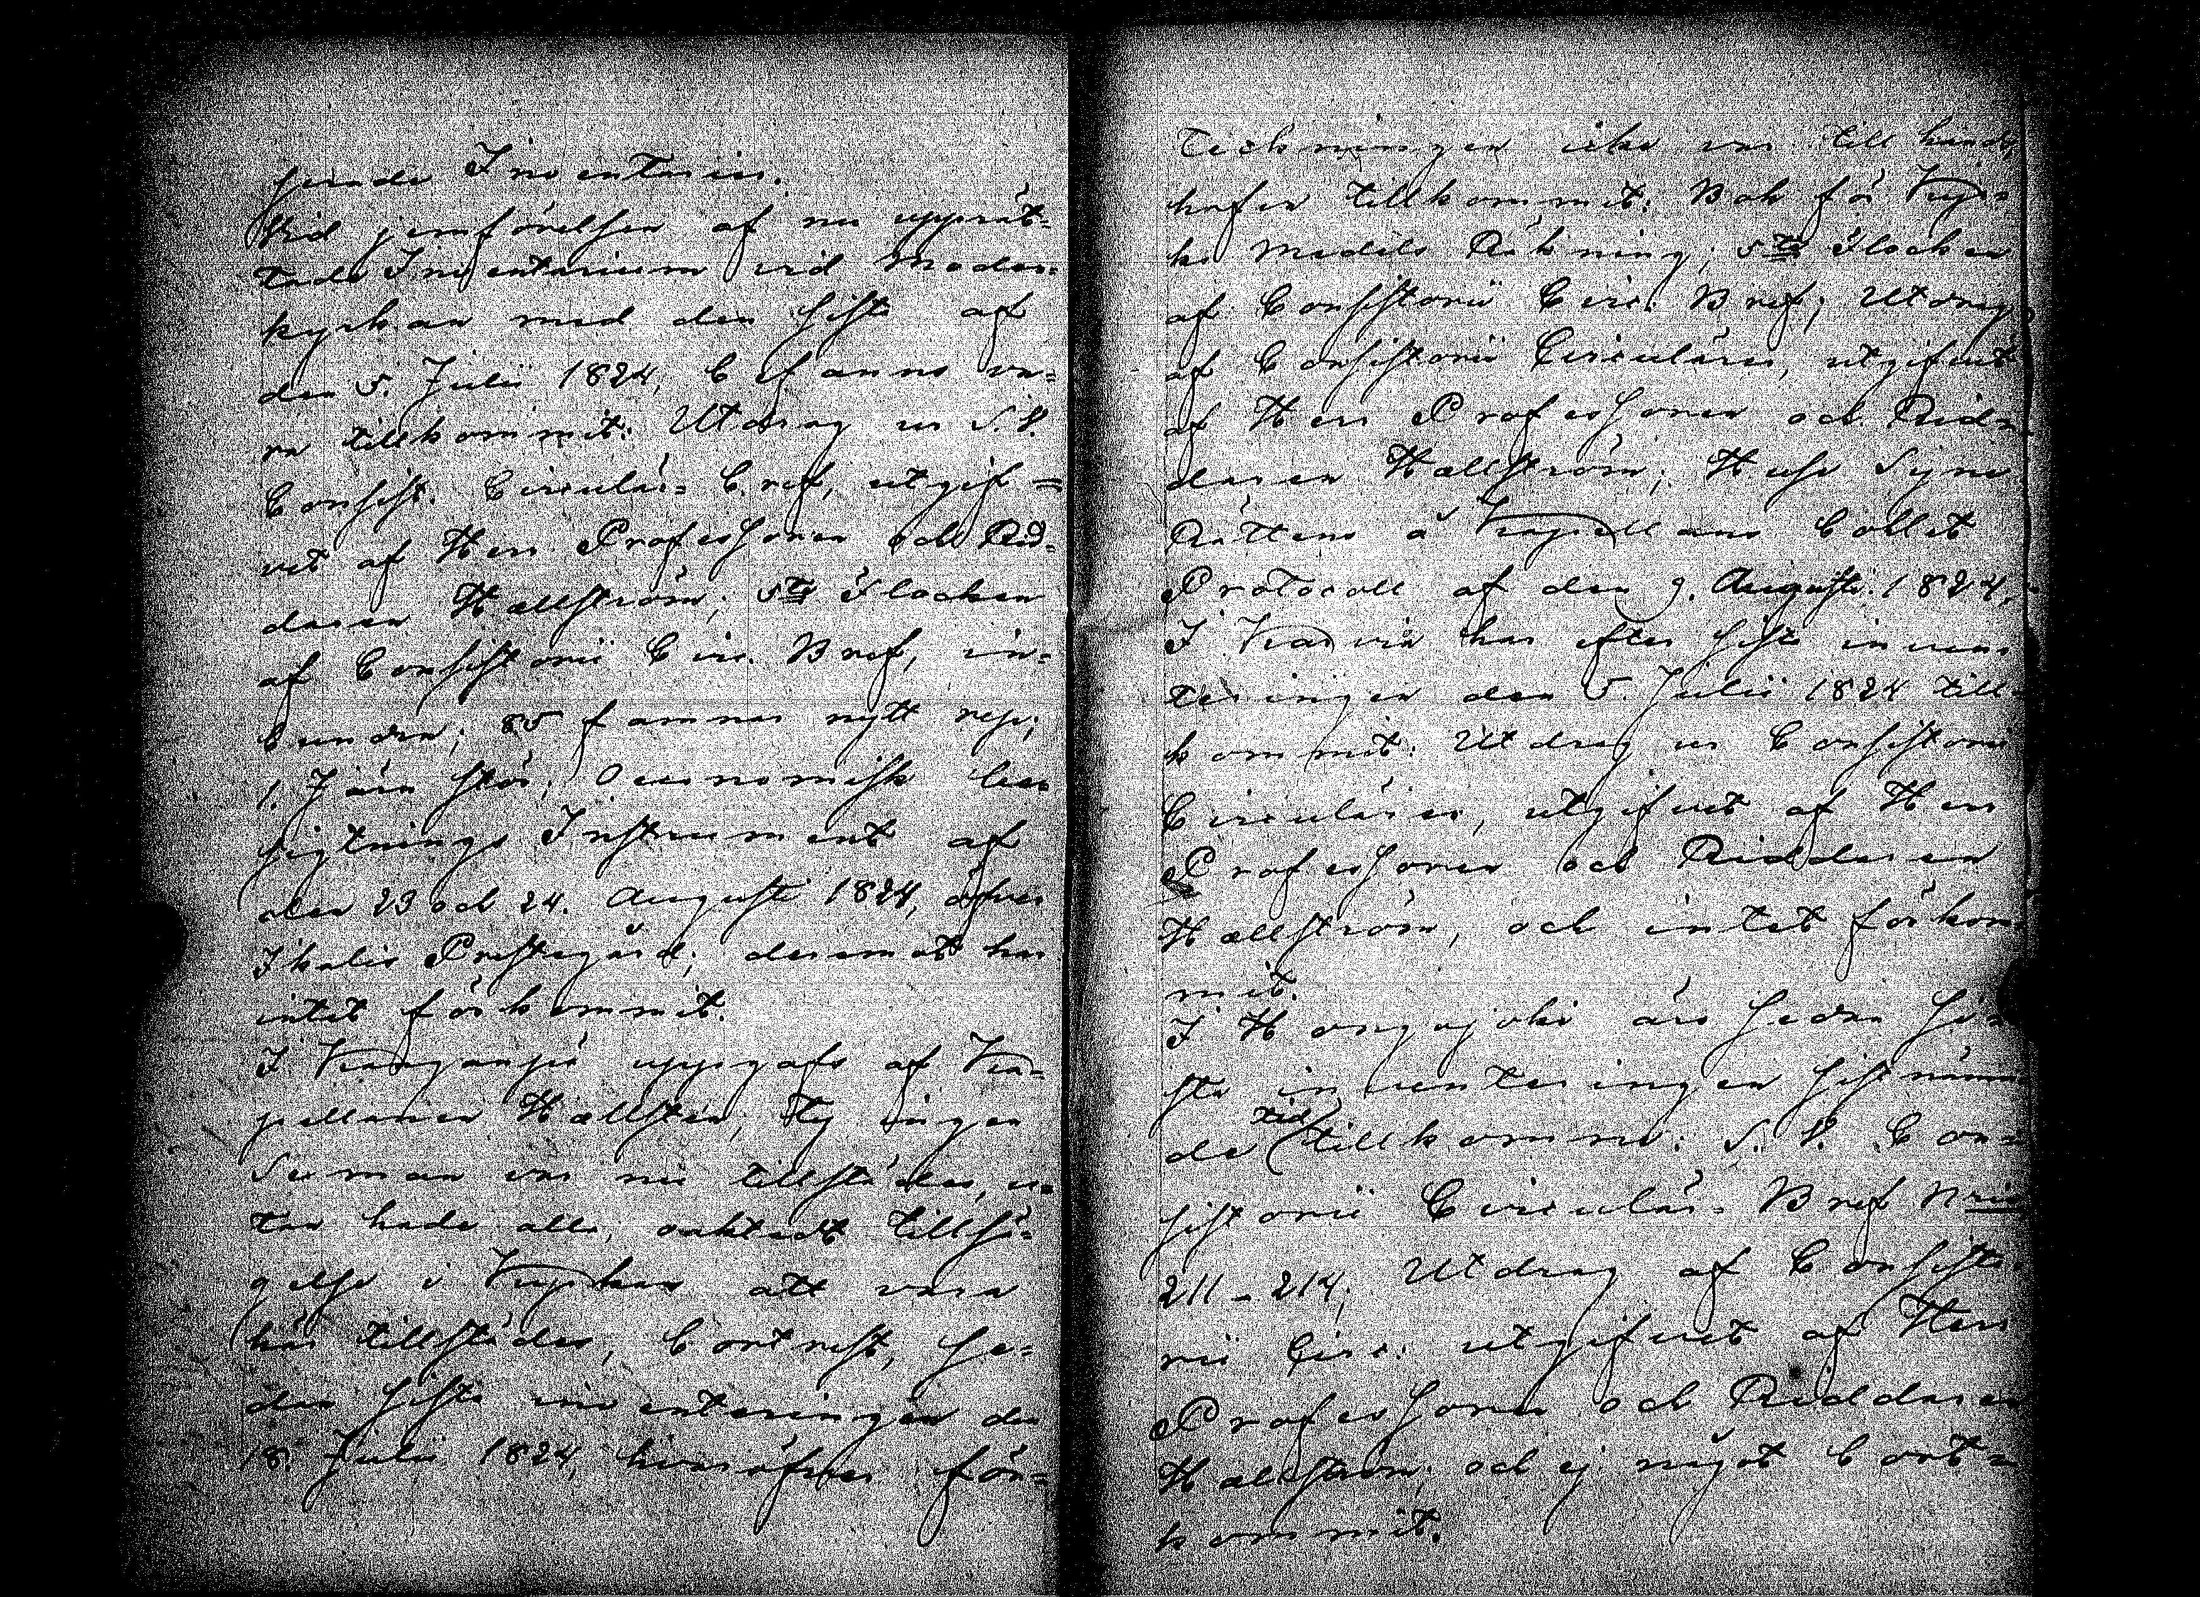 hörande Inventarier.
Vid jemförelsen af nu upprät-
tade Inventarium vid Moder-
kyrkan med den sista af
den 5. Julii 1824, befanns va-
ra tillkommit: Utdrag ur S. V.
Consist. Circulär-bref, utgif-
vet af Herr Professoren och Rid-
daren Hællström; 5te Flocken
af Consistorii Circ. Bref, in-
bunden; 85 famnar nytt rep;
1. Järn stör; Oeconomisk be-
sigtnings Instrument af
den 23 och 24. Augusti 1824, öfver
Ikalis Prestegård; deremot har
intet förkommit.
I Kankanpä uppgafs af Ka-
pellanen Hællsten, ty ingen
Sexman var nu tillstädes, u-
tan hade alla, oaktadt tillsä-
gelse i Kyrkan att vara
här tillstädes, bortrest, se-
dan sista inventeringen den
18. Julii 1824, hvaröfver för-
teckningen icke var till hands,
hafva tillkommit: Bok för Kyr-
ko Medels Räkning; 5te Flocken
af Consistorii Circ. Bref; Utdrag
af Consistorii Circulärer, utgifvet
af Herr Professoren och Rid-
daren Hællström; Huse Syne
Rättens å Kapellans Bolet
Protocoll af den 9. Augusti 1824,
I Karvia har efter sista inven
teringen den 5. Julii 1824 till-
kommit: Utdrag ur Consistorii
Circulärer, utgifvet af Herr
Professoren och Riddaren
Hællström, och intet förkom-
mit.
I Hongojoki äro sedan si-
sta inventeringen sistnämn-
de tid tillkomne: S. V. Con-
sistorii Circulär-Bref N:ris
211-214; Utdrag af Consisto-
rii Circ. utgifvet af Herr
Professoren och Riddaren
Hællström; och ej något bort-
kommit.